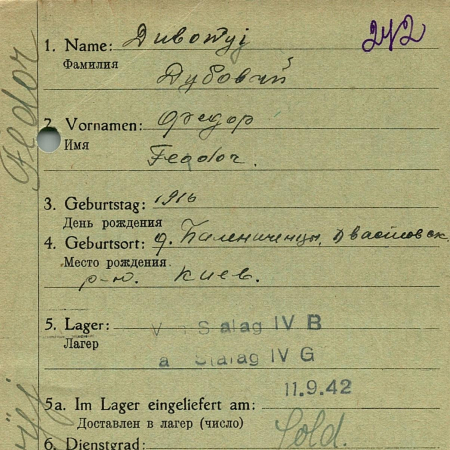 1. Name: Дивотуј
242
Фамилия Дубовый
2. Vornamen: Федор
Имя
Feodor.
3. Geburtstag: 1916
День рождения
4. Geburtsort: д.
Место рождения
р-ю. Киев.
5. Lager: Stalag IV B
Лагер
a Stalag IV G
11.9.42
5a. Im Lager eingeliefert am:
Доставлен в лагер (число)
6. Dienstgrad: Sold.
Feodor